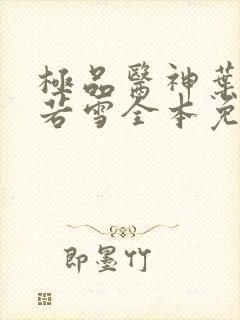 極品醫神葉
若雪全本免
即墨竹